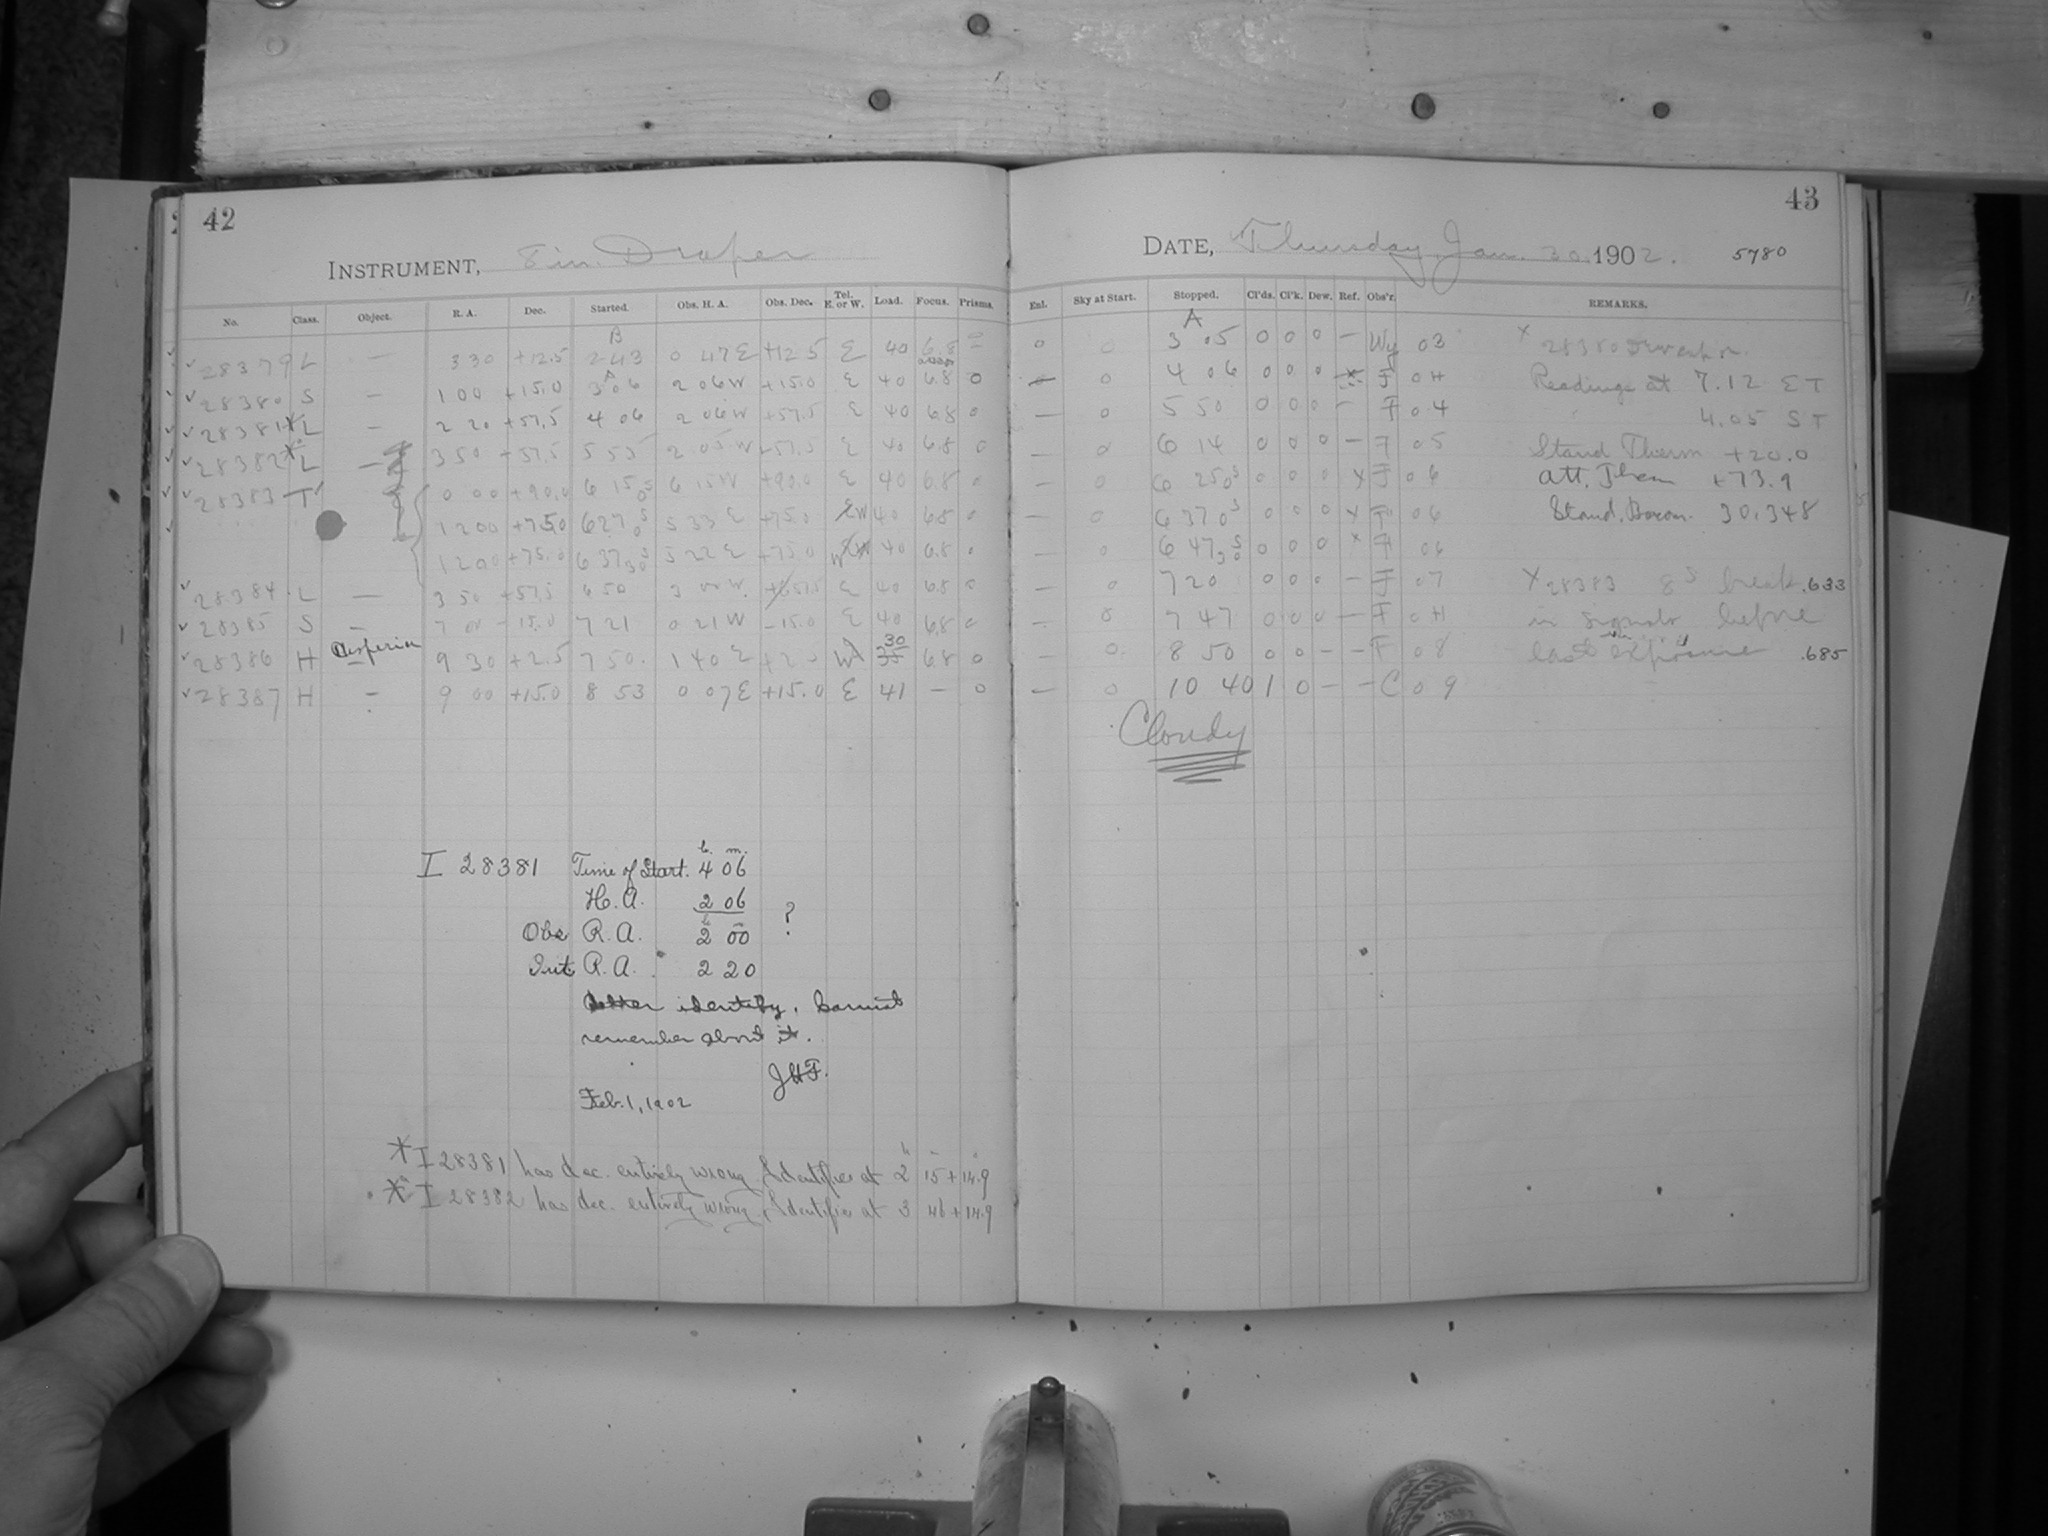 42
INSTRUMENT, 8 in. Draper
No. Class. Object. R. A. Dec. Started. Obs. H. A. Obs. Dec. Tel. E. or W. Load. Focus. Prisms.
B
28379 L — 3 30 +12.5 2 43 0 47 E +12.5 E 40 6.8
A
28380 S — 1 00 +15.0 3 06 2 06 W +15.0 E 40 6.8 0
28381* L — 2 20 +57.5 4 06 2 06 W +57.5 E 40 6.8 0
28382* L — 3 50 +57.5 5 55 2 05 W +57.5 E 40 6.8 0
28383 T 0 00 +90.0 6 15 05 6 15 W +90.0 E 40 6.8 0
12 00 +75.0 6 27 05 5 33 E +75.0 W 40 6.8 0
12 00 +75.0 6 37 30 5 22 E +75.0 W 40 6.8 0
28384 L — 3 50 +57.5 6 50 3 00 W +57.5 E 40 6.8 0
28385 S — 7 00 -15.0 7 21 0 21 W -15.0 E 40 6.8 0
28386 H 9 30 +2.5 7 50 1 40 E +2.5 W 30 6.8 0
28387 H — 9 00 +15.0 8 53 0 07 E +15.0 E 41 — 0
I 28381 Time of Start. 4h 06m
H. A. 2 06
Obs R. A. 2h 00m ?
Int R. A. 2 20
Better identify. Cannot
remember about it.
JHF.
Feb. 1, 1902
* I 28381 has dec. entirely wrong. Identifies at 2 15 + 14.9
* I 28382 has dec. entirely wrong. Identifies at 3 46 + 14.9
43
DATE, Thursday, Jan. 30 1902. 5780
Enl. Sky at Start. Stopped. Cl'ds. Cl'k. Dew. Ref. Obs'r. REMARKS.
A
0 0 3 05 0 0 0 — Wy 03
— 0 4 06 0 0 0 F 04 Readings at 7.12 ET
— 0 5 50 0 0 0 — F 04 4.05 ST
— 0 6 14 0 0 0 — F 05 Stand Therm +20.0
— 0 6 25 05 0 0 0 x F 06 Att. Therm +73.9
— 0 6 37 05 0 0 0 x F 06 Stand. Barom. 30.348
— 0 6 47 30 0 0 0 x F 06
— 0 7 20 0 0 0 — F 07 x 28383 8s break .633
— 0 7 47 0 0 0 — F 04 in signals before
— 0 8 50 0 0 — — F 08 last exposure .685
— 0 10 40 1 0 — — C 09
Cloudy